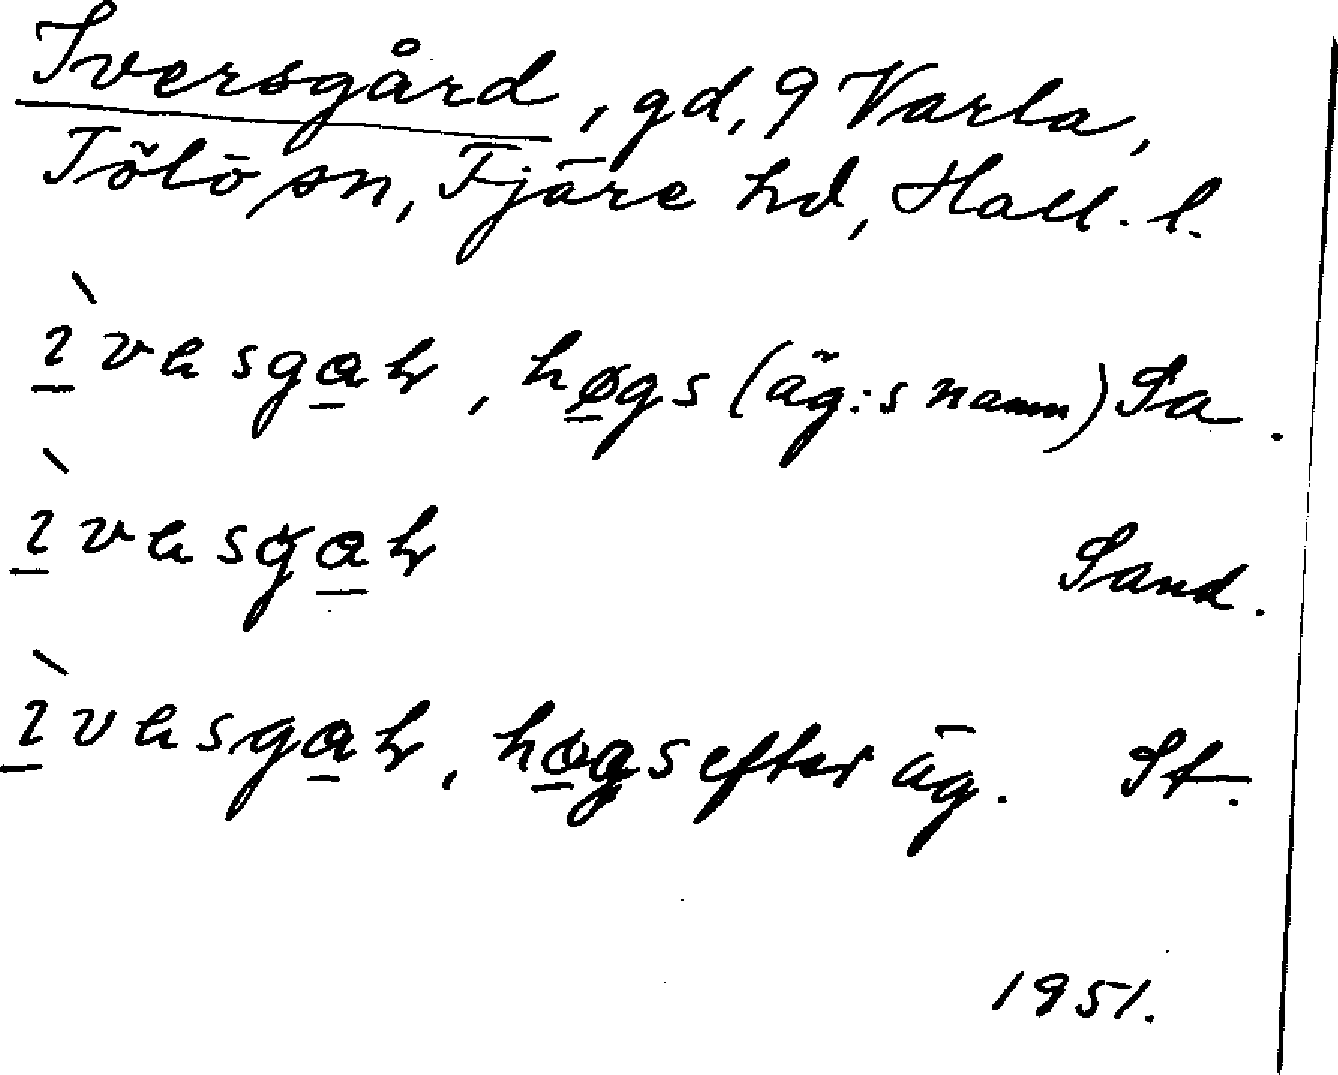 Iversgård, gd, 9 Varla,
Tölö sn, Fjäre hd, Hall. l.
ìvasgar, høgs (äg:s namn) Sa.
ìvasgar Sand.
ìvasgar, høgs efter äg. St.
1951.